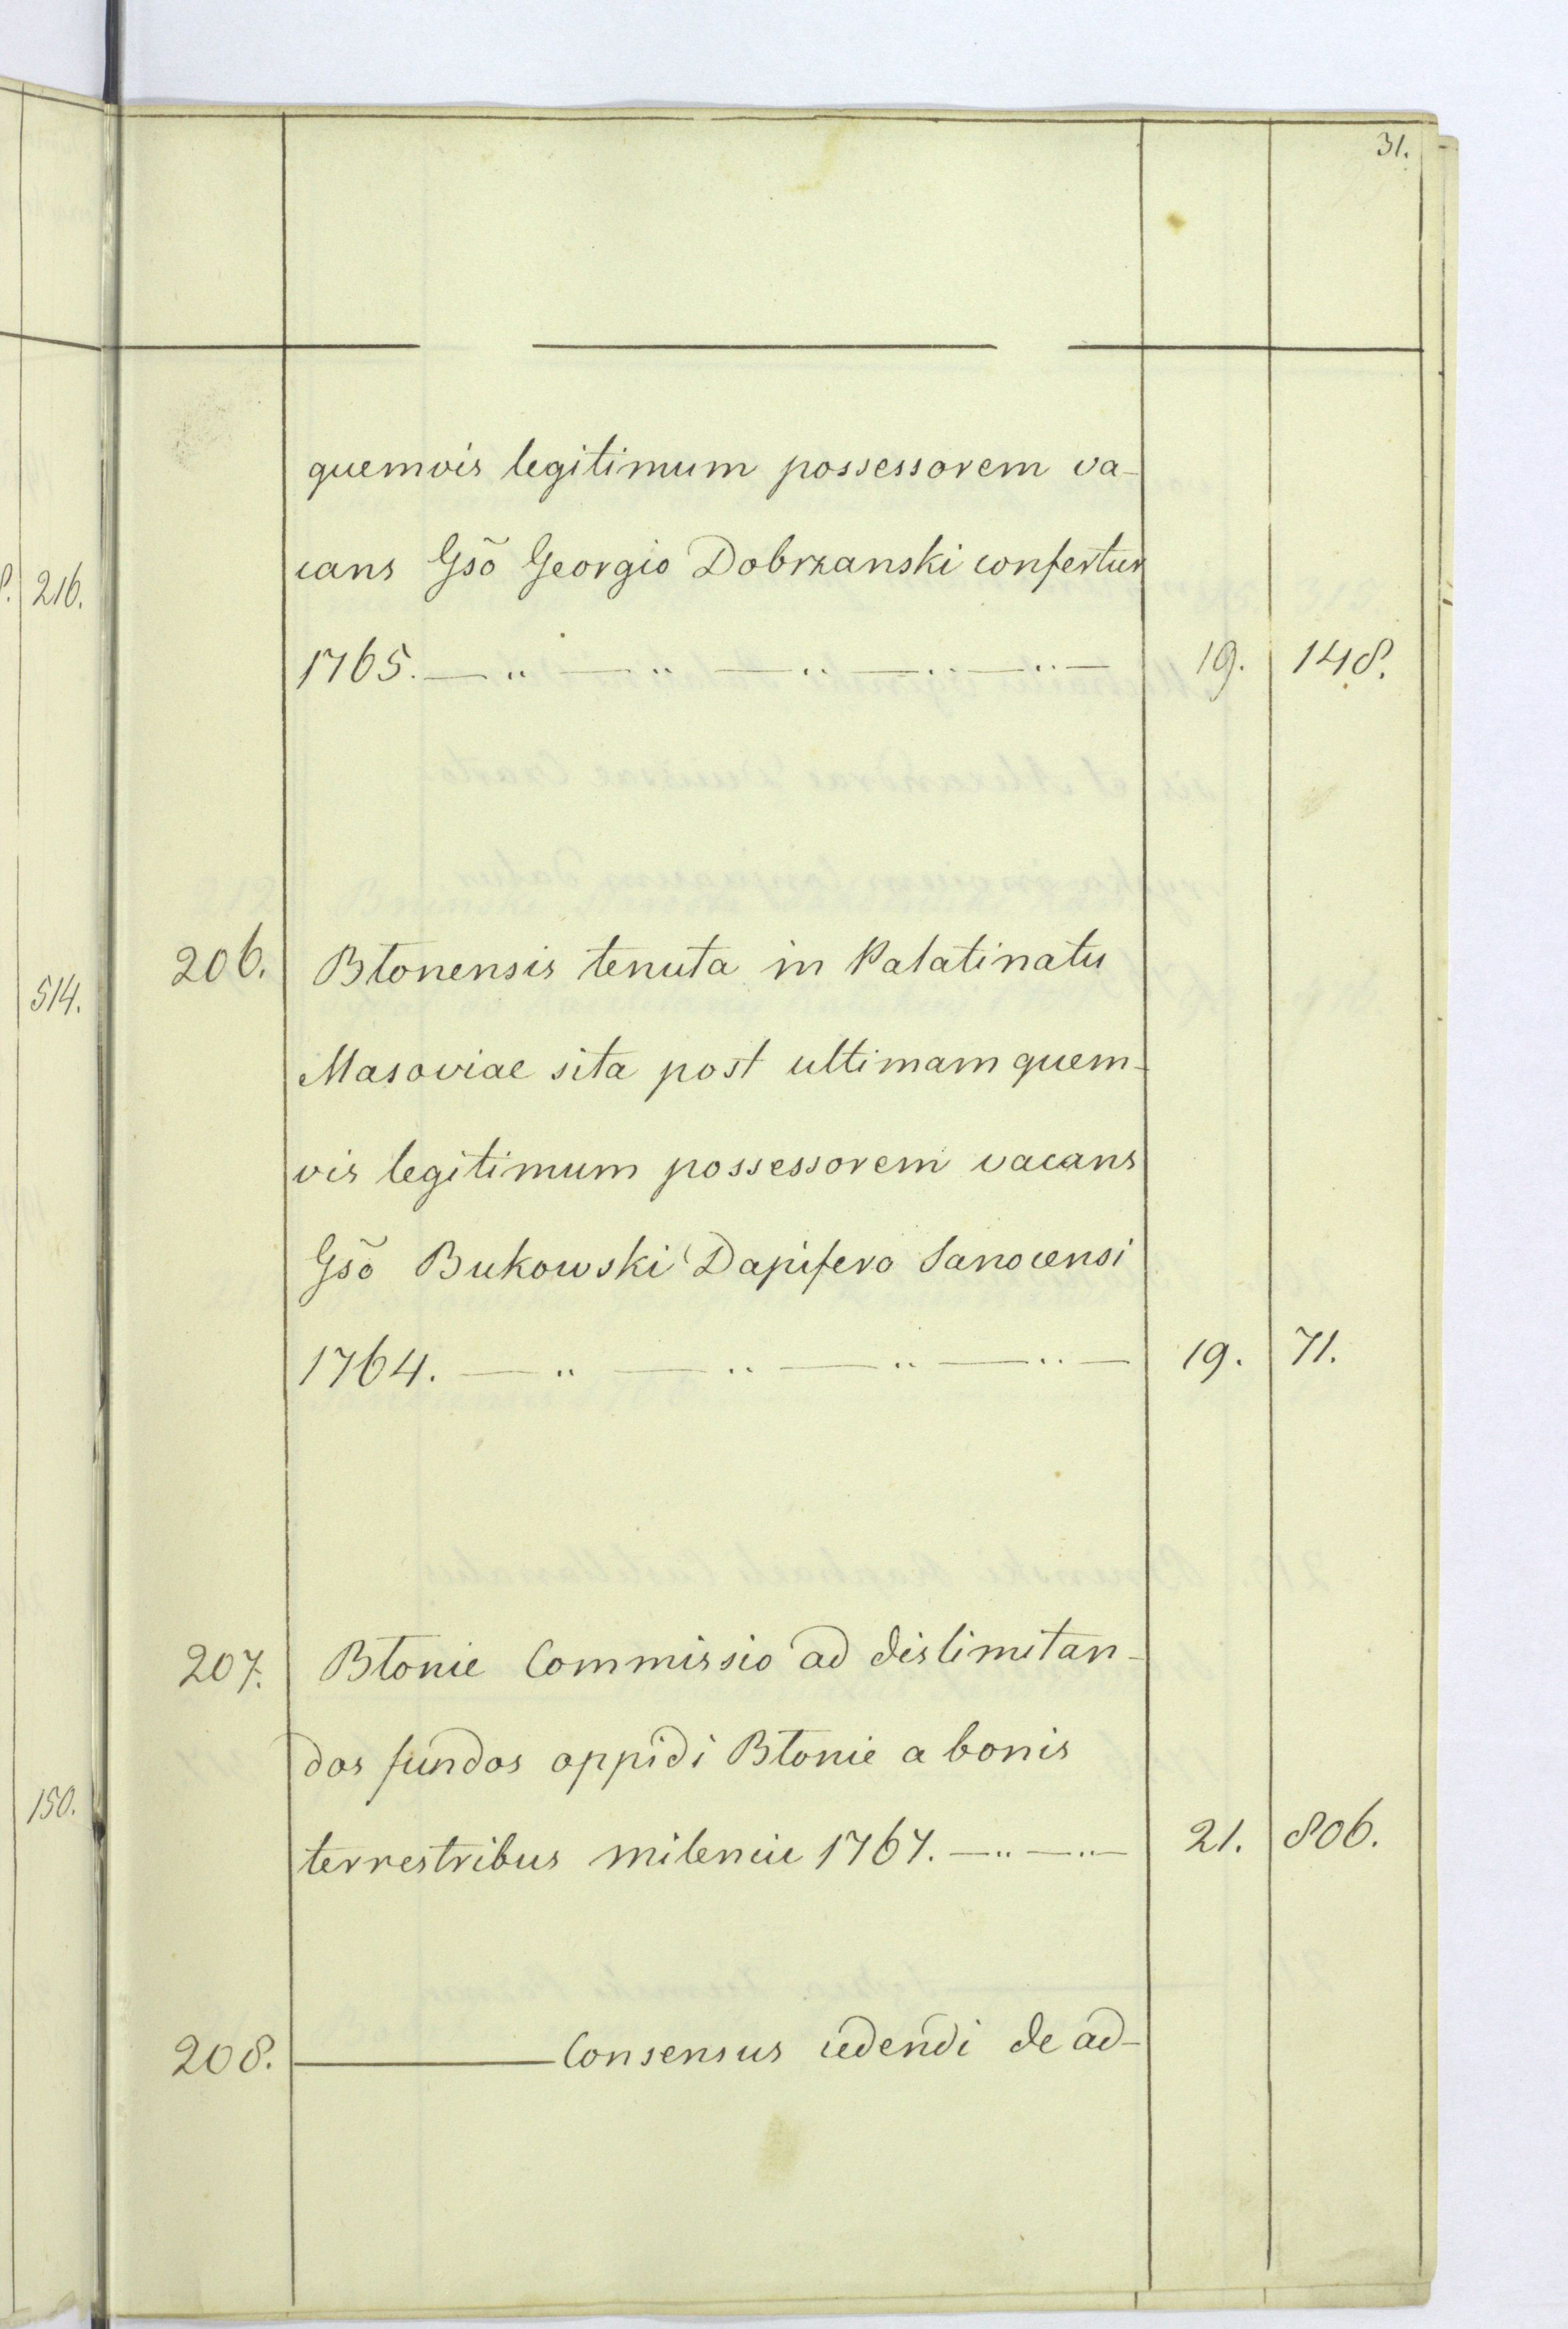 31.
quemvis legitimum possessorem va-
cans Gsõ Georgio Dobrzanski confertur
1765. — „ — „ — „ — „ — „ — 19. 148.
206. Btonensis tenuta in Palatinatu
Masoviae sita post ultimam quem-
vis legitimum possessorem vacans
Gsõ Bukowski Dapifero Sanocensi
1764. — „ — „ — „ — „ — 19. 71.
207. Btonie Commissio ad dislimitan-
dos fundos oppidi Btonie a bonis
terrestribus milencii 1767. — „ — „ — 21. 806.
208. ——— Consensus cedendi de ad-
216.
514.
150.